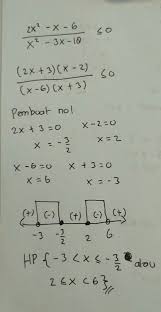 2x² - x - 6 / x² - 3x - 18 ≤ 0
(2x + 3)(x - 2) / (x - 6)(x + 3) ≤ 0
Pembuat nol
2x + 3 = 0 x - 2 = 0
x = -3/2 x = 2
x - 6 = 0 x + 3 = 0
x = 6 x = -3
(+) (-) (+) (-) (+)
-3 -3/2 2 6
HP { -3 < x ≤ -3/2 atau
2 ≤ x < 6 }